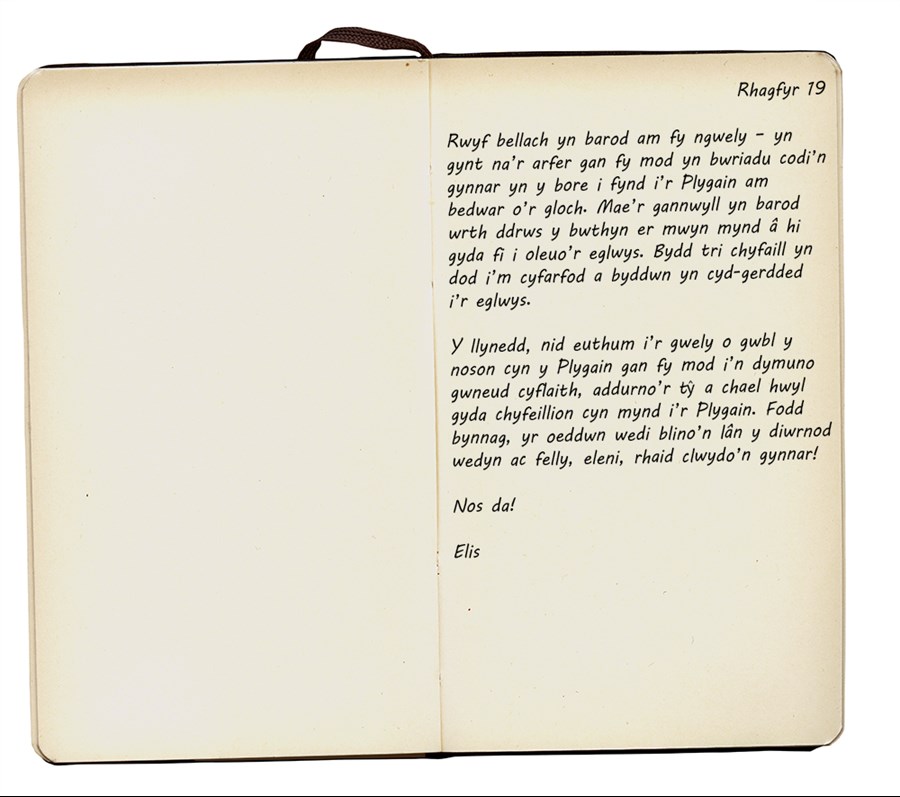 Rhagfyr 19
Rwyf bellach yn barod am fy ngwely – yn
gynt na'r arfer gan fy mod yn bwriadu codi'n
gynnar yn y bore i fynd i'r Plygain am
bedwar o'r gloch. Mae'r gannwyll yn barod
wrth ddrws y bwthyn er mwyn mynd â hi
gyda fi i oleuo'r eglwys. Bydd tri chyfaill yn
dod i'm cyfarfod a byddwn yn cyd-gerdded
i'r eglwys.
Y llynedd, nid euthum i'r gwely o gwbl y
noson cyn y Plygain gan fy mod i'n dymuno
gwneud cyflaith, addurno'r tŷ a chael hwyl
gyda chyfeillion cyn mynd i'r Plygain. Fodd
bynnag, yr oeddwn wedi blino'n lân y diwrnod
wedyn ac felly, eleni, rhaid clwydo'n gynnar!
Nos da!
Elis